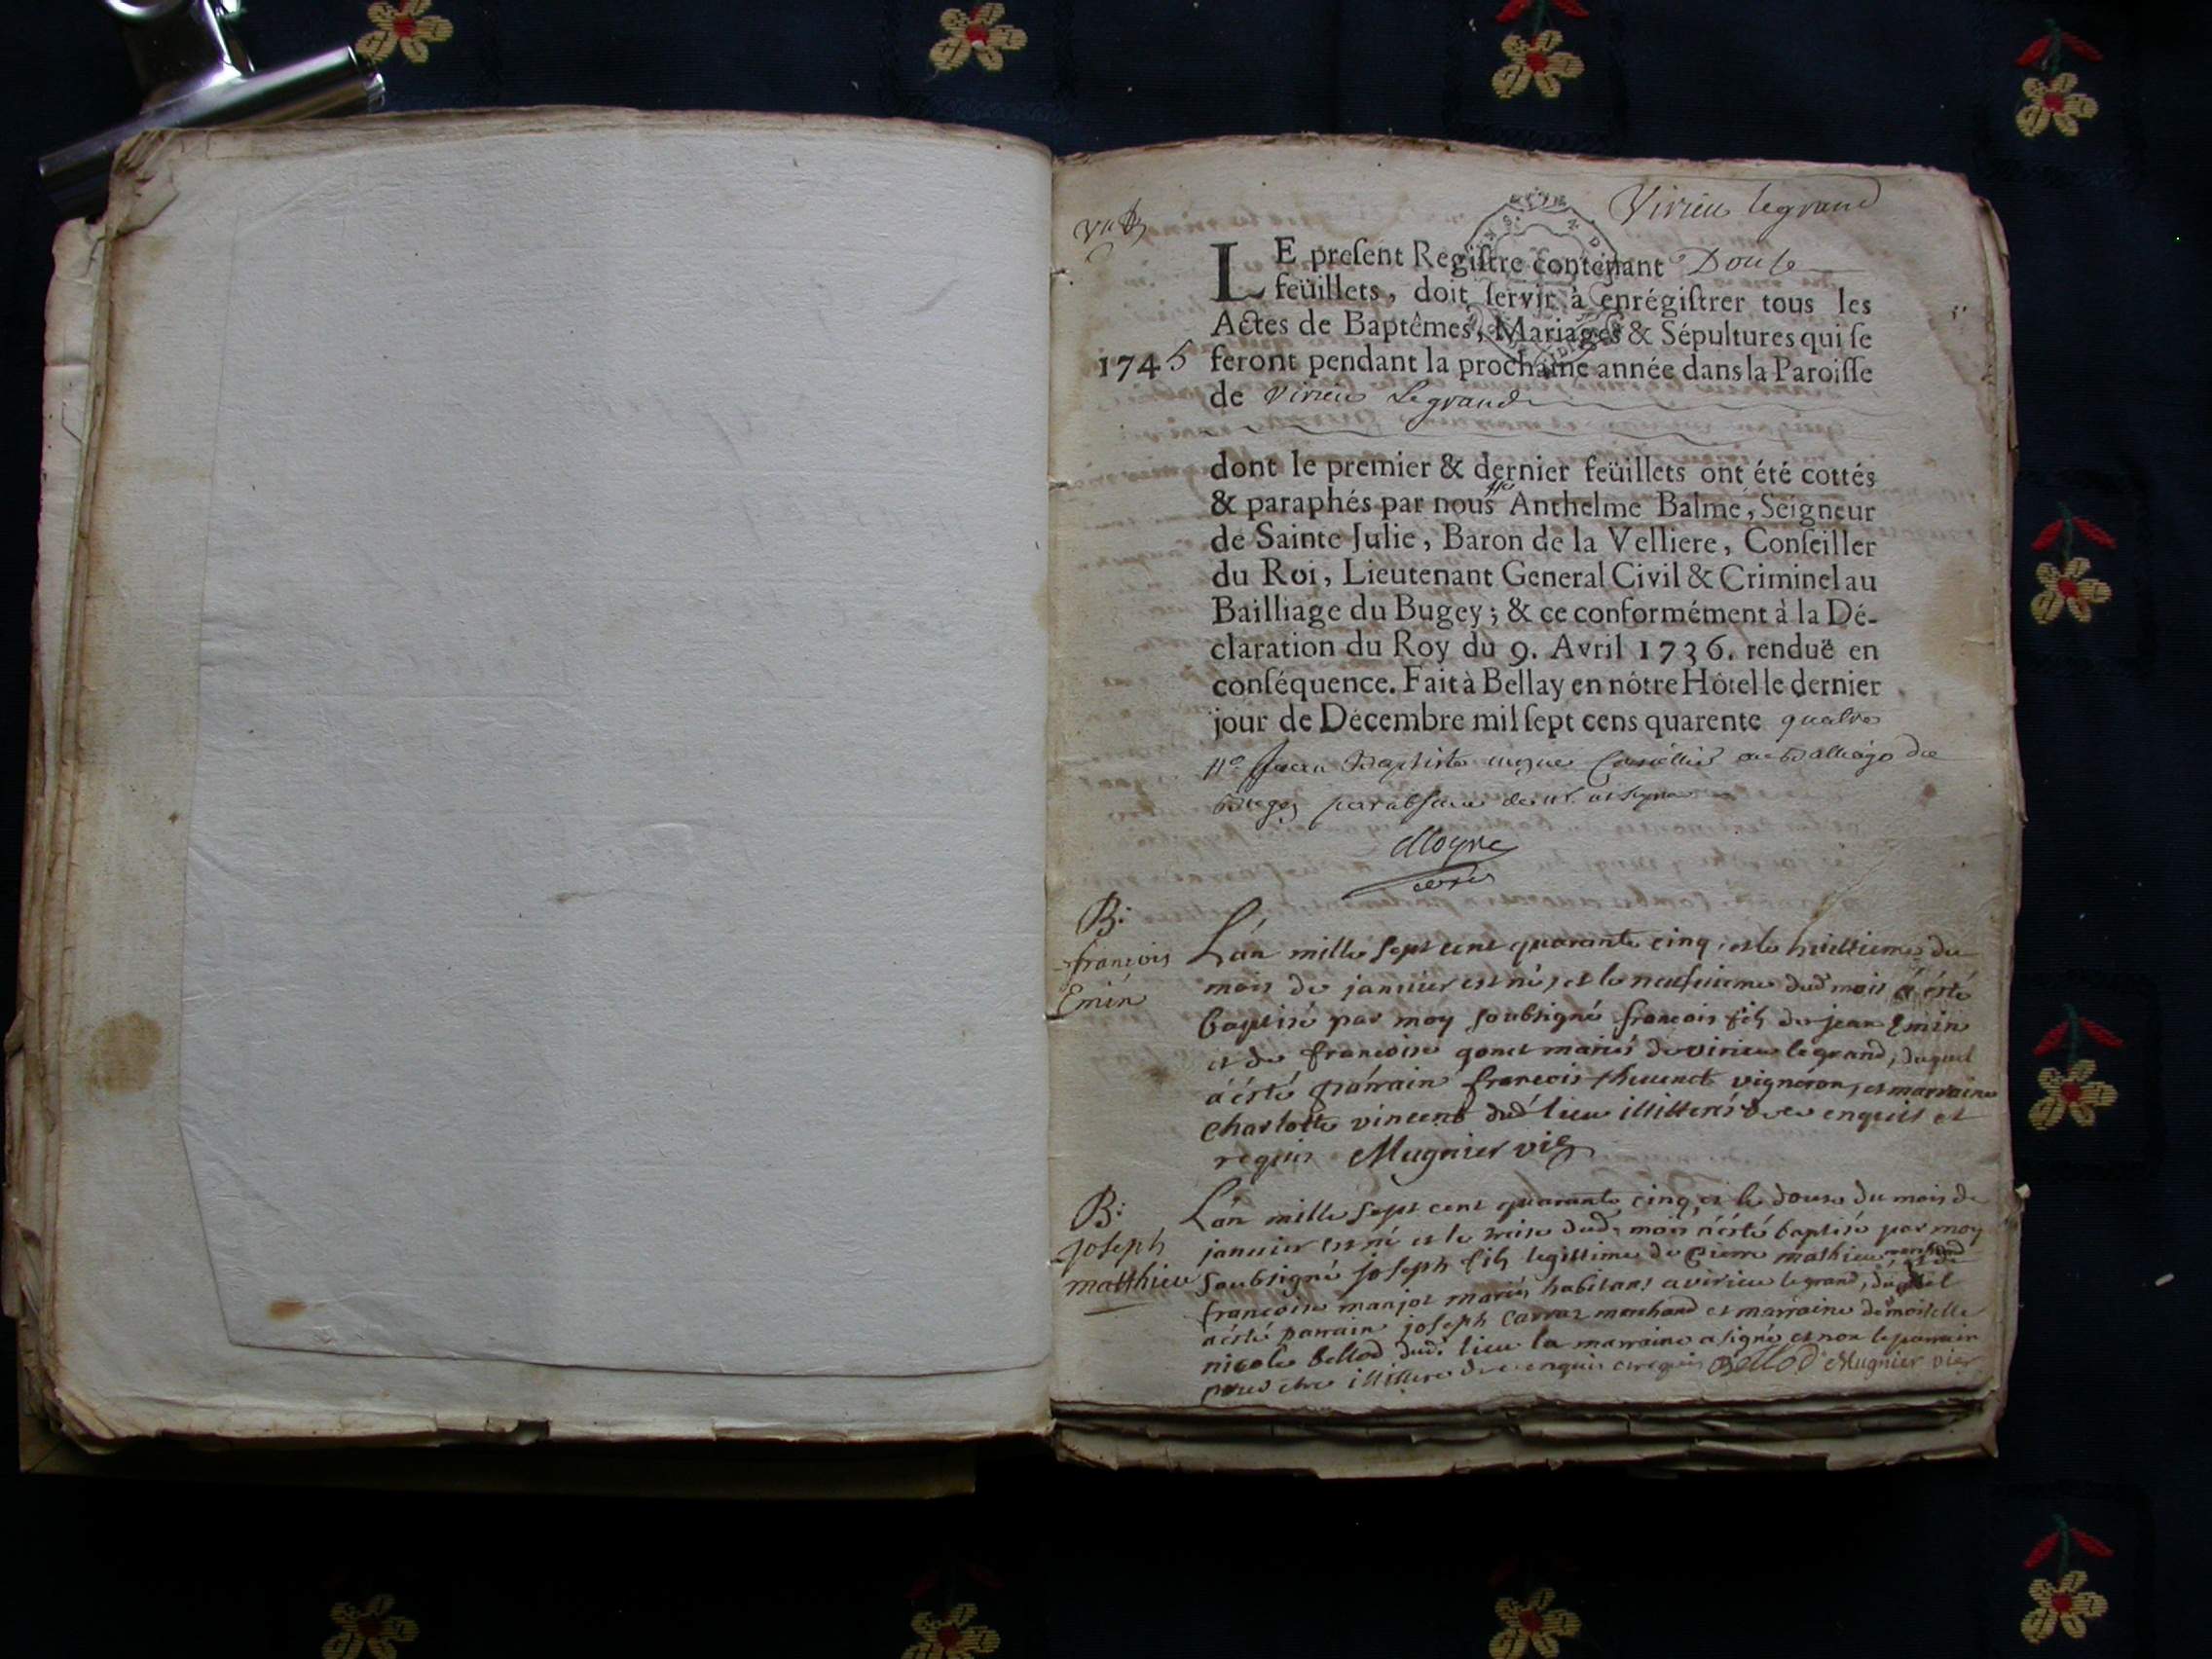 Virieu legrand
LE preſent Regiſtre contenant Douſe
feüillets, doit ſervir à enrégiſtrer tous les
Actes de Baptêmes, Mariages & Sépultures qui ſe
1745 feront pendant la prochaine année dans la Paroiſſe
de Virieu Legrand
dont le premier & dernier feüillets ont été cottés
& paraphés par nous Anthelme Balme, Seigneur
de Sainte Julie, Baron de la Velliere, Conſeiller
du Roi, Lieutenant General Civil & Criminel au
Bailliage du Bugey; & ce conformément à la Dé-
claration du Roy du 9. Avril 1736. renduë en
conſéquence. Fait à Bellay en nôtre Hôtel le dernier
jour de Décembre mil ſept cens quarente quatre
Jean Baptiste
Bugey par absence
B:
françois
Emin
L'an mille sept cent quarante cinq, et le huittieme du
mois de janvier est né, et le neufvieme dud mois a été
baptisé par moy soubsigné francois fils de jean Emin
et de francoise gonet mariés de virieu le grand, duquel
a été parrain francois thevenet vigneron, et marraine
charlotte vincent dud lieu illitterés de ce enquis et
requis Mugnier vic
B:
joseph
matthieu
L'an mille sept cent quarante cinq, et le douse du mois de
janvier est né et le treise dud. mois a été baptisé par moy
soubsigné joseph fils legittime de pierre mathieu, marchand et de
francoise marjot mariés habitans a virieu le grand, duquel
a été parrain joseph carraz marchand et marraine demoiselle
nicole bellod dud. lieu la marraine a signé et non le parrain
pour etre illitteré de ce enquis et requis Bellod Mugnier vic